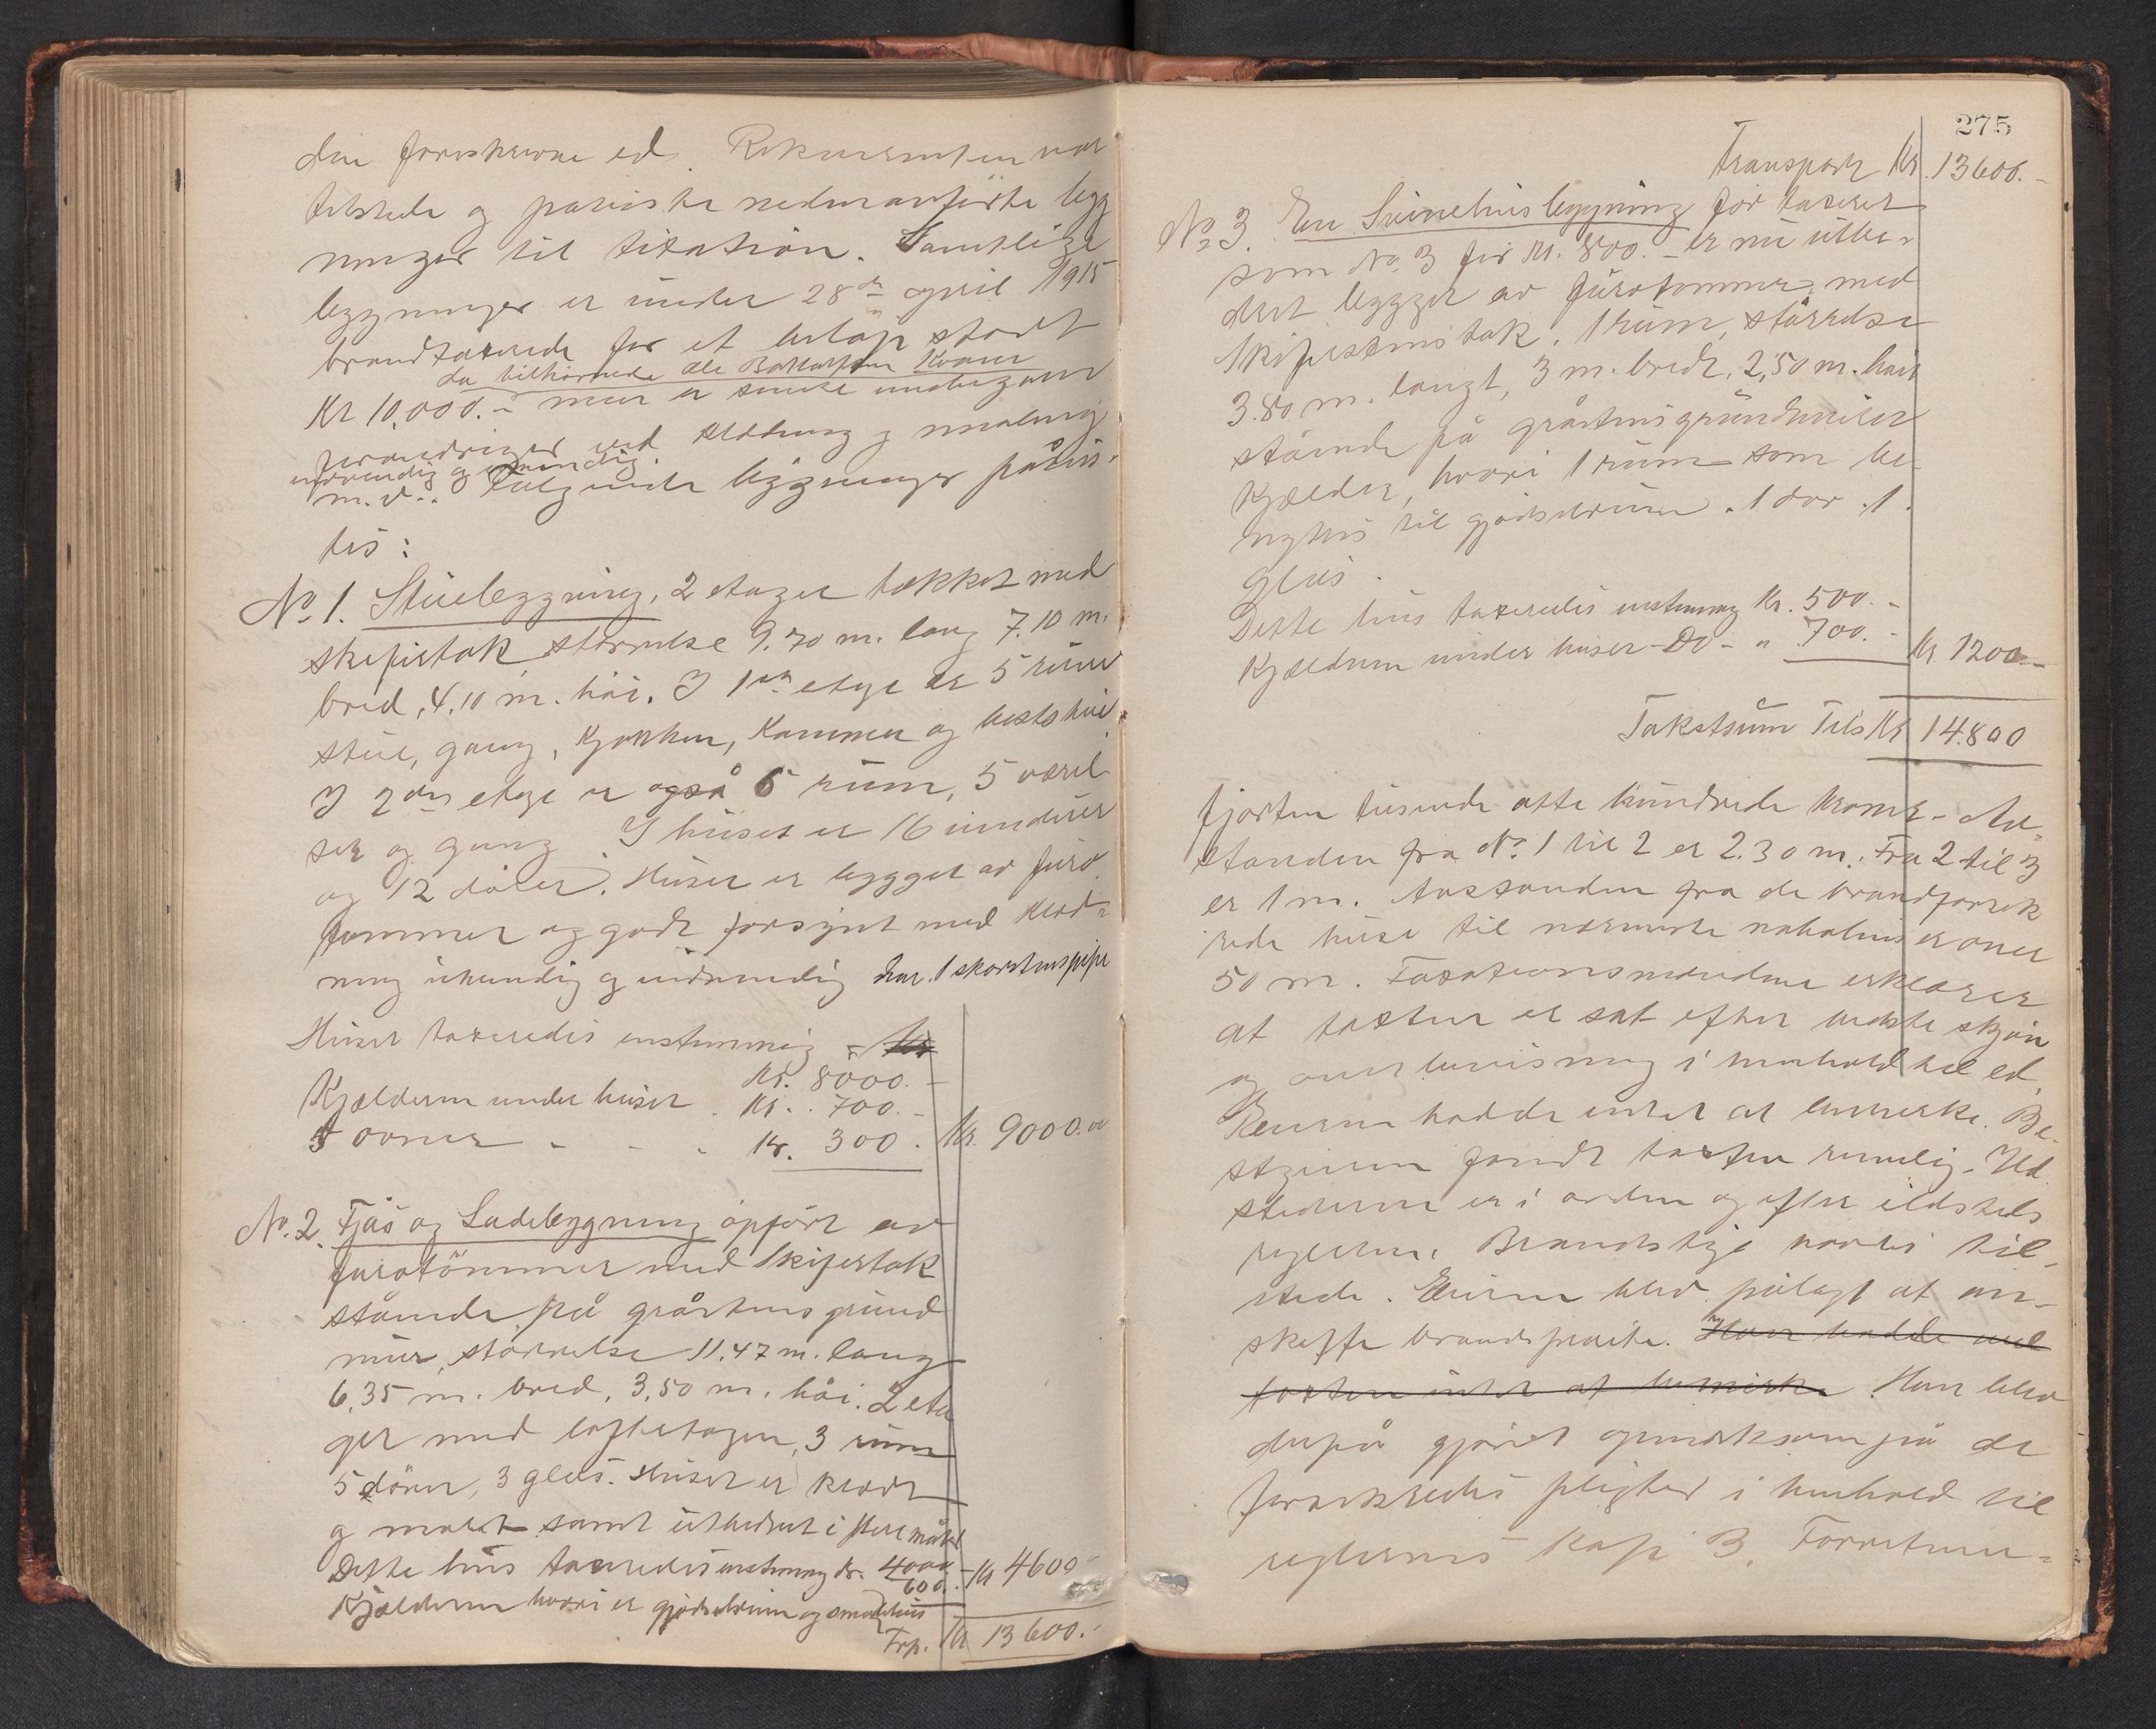 den foreskrevne ed. Rekvirenten var
tilstede og paaviste nedenanförte byg
ninger til taxation. Samtlige
bygninger er under 28de april 1915
brandtaxerede for et beløp stort
da tilhørende Ole Kvarme
Kr 10,000.- men er senere undergaaet
forandringer ved klædning og maling
utvendig og indvendig
m. v. Følgende bygninger påvis-
tes:
No 1. Stuebygning, 2 etager tækket med
skifertak størrelse 9.70 m. lang 7.10 m.
bred, 4.10 m. høi. I 1ste etage er 5 rum
stue, gang, kjøkken, kammer og
I 2den etage er også 6 rum, 5 værel
ser og gang. I huset er 16 vinduer
og 12 dører. Huset er bygget av furu
tømmer og godt forsynt med klæd-
ning utvendig og indvendig har 1 skorstenspipe
Huset taxeredes enstemmig - Kr
Kr. 8000.-
Kjælderen under huset . Kr. 700.-
5 ovner - - - Kr. 300. Kr. 9000.00
No. 2. Fjøs og Ladebygning opført av
furutömmer med skifertak
stående på gråstensgrund
mur, størrelse 11.47 m. lang
6.35 m. bred, 3,50 m. høi. 2 eta
ger med loftetagen, 3 rum
5 dörer, 3 glas. Huset er klædt
og malt samt utbedret i flere måter
Dette hus taxeredes enstemmig Kr. 4000.
600. - Kr 4600-
Kjælderen hvori er gjødselrum og smalehus
Trp. Kr 13600.-
275
Transport Kr. 13600.-
No 3. En Svinehusbygning før taxeret
som No 3 for Kr. 800.- er nu utbe-
dret bygget av furutømmer med
skifertenstak. 1 rum, størrelse
3.80 m. langt, 3 m. bredt, 2,50 m. høit
stående på gråstensgrundmurer
Kjælder, hvori 1 rum som be-
nyttes til gjødselrum. 1 dør . 1
glas.
Dette hus taxeredes enstemmig Kr. 500.-
Kjælderen under huset - Do - " 700.- Kr. 1200.-
Takstsum Tils Kr 14.800
fjorten tusende otte hundrede kroner. Av-
standen fra No 1 til 2 er 2.30 m. Fra 2 til 3
er 1 m. Avstanden fra de brandforsik
rede huse til nærmeste nabohus er over
50 m. Taxationsmændene erklærer
at taxten er sat efter bedste skjøn
og overbevisning i henhold til ed.
Eieren hadde intet at bemerke. Be-
styreren fandt taxten rimelig. Ild
stederne er i orden og efter ildsteds
reglerne. Brandstige haves til-
stede. Eieren blev pålagt at an-
skaffe brandsprøite. Han hadde ved
taxten intet at bemerke. Han blev
derpå gjort opmerksom på de
forsikredes pligter i henhold til
reglernes kap 3. Forretnin-